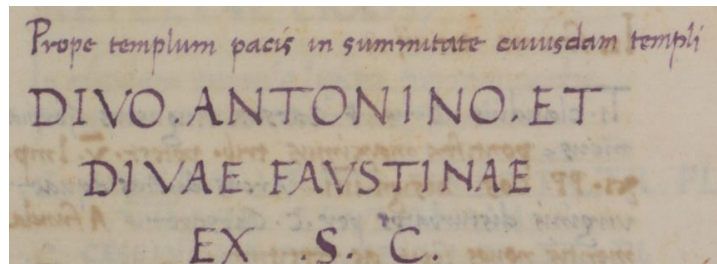 Prope templum pacis in summitate cuiusdam templi
DIVO.ANTONINO.ET
DIVAE FAVSTINAE
EX .S. C.